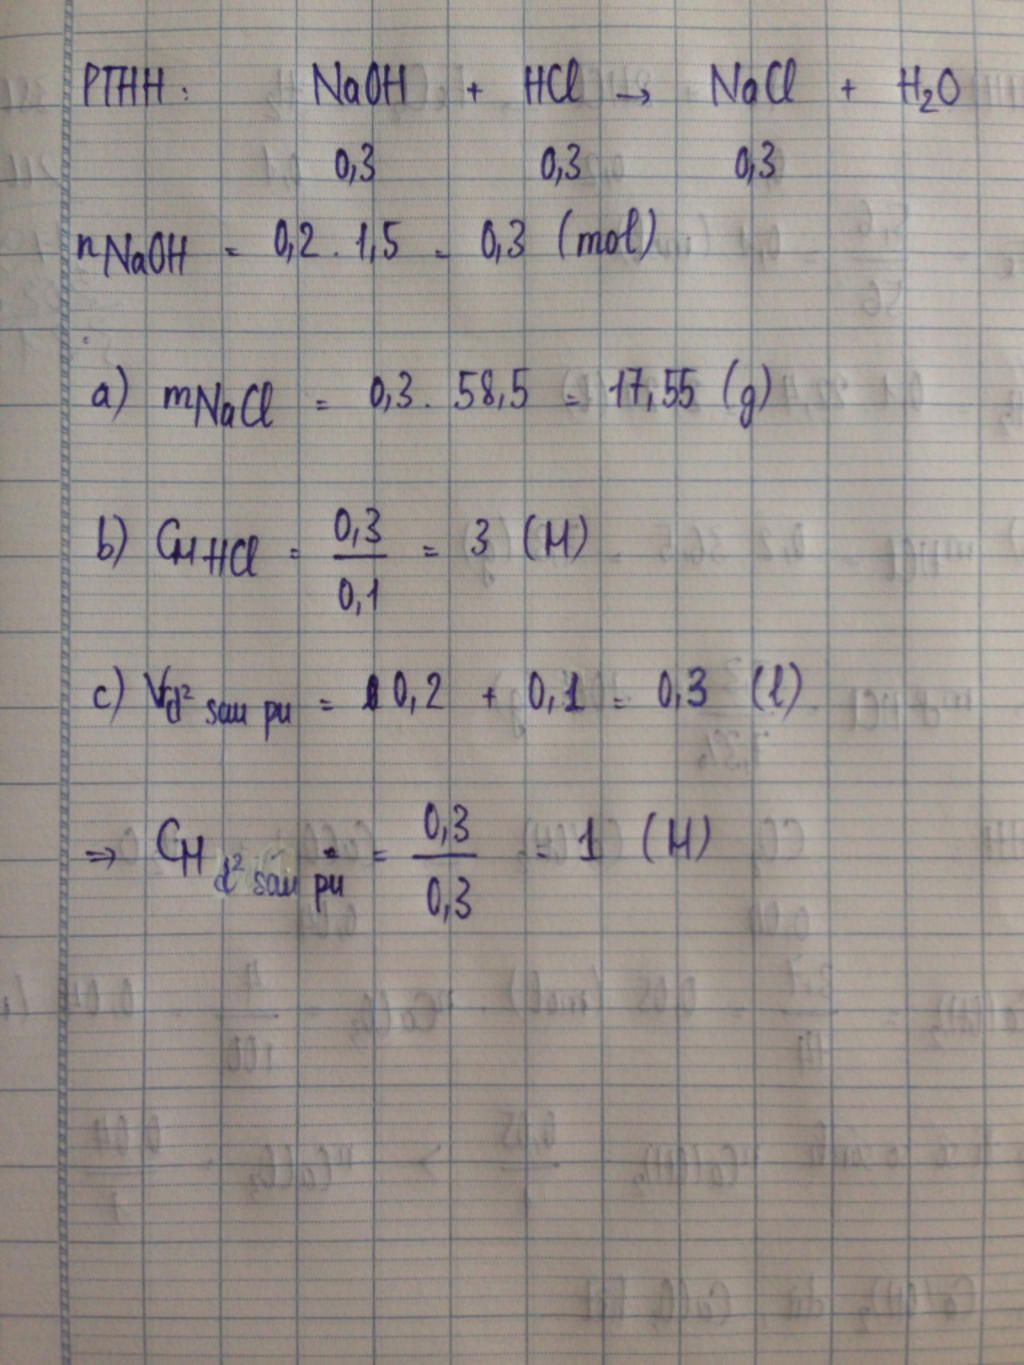 PTHH: NaOH + HCl → NaCl + H₂O
0,3 0,3 0,3
nNaOH = 0,2 . 1,5 = 0,3 (mol)
a) mNaCl = 0,3 . 58,5 = 17,55 (g)
b) CM HCl = 0,3/0,1 = 3 (M)
c) Vd² sau pu = 0,2 + 0,1 = 0,3 (l)
⇒ CM d² sau pu = 0,3/0,3 = 1 (M)